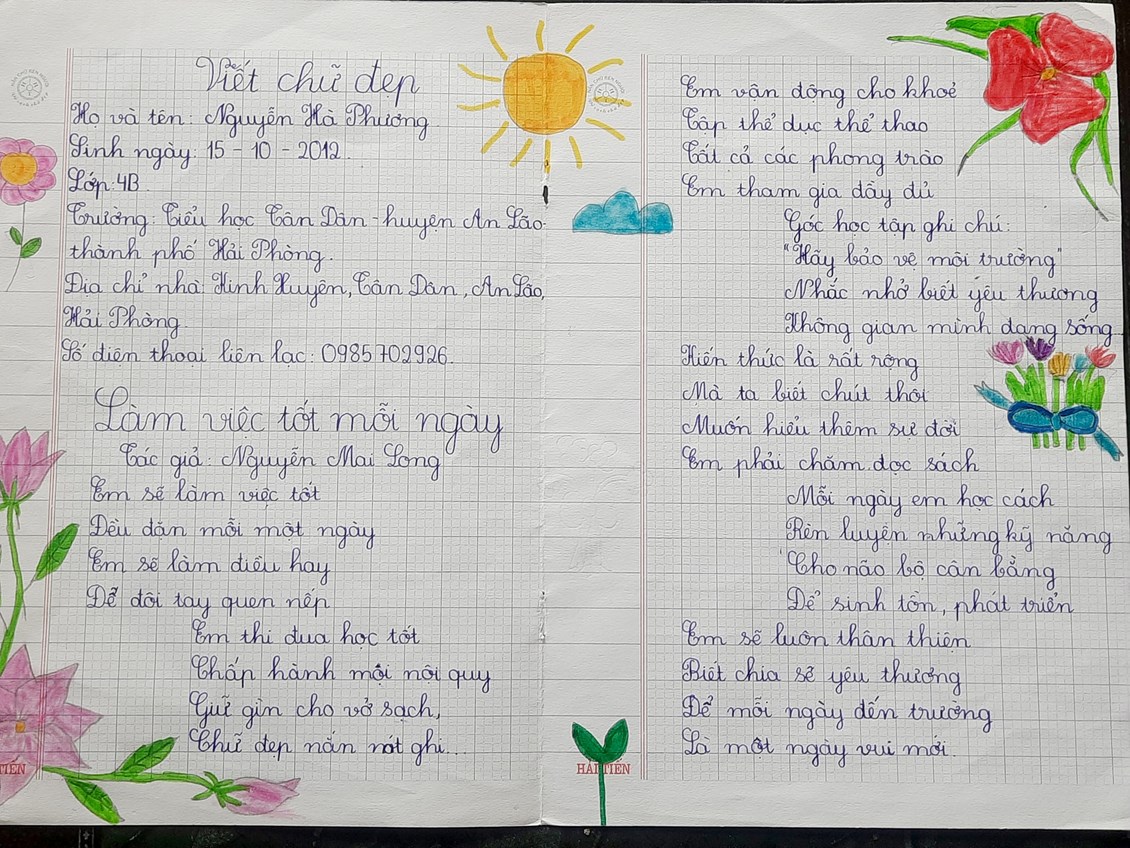 Viết chữ đẹp
Họ và tên: Nguyễn Hà Phương
Sinh ngày: 15 - 10 - 2012.
Lớp: 4B
Trường: Tiểu học Tân Dân - huyện An Lão-
thành phố Hải Phòng.
Địa chỉ nhà: Kinh Xuyên, Tân Dân, An Lão,
Hải Phòng
Số điện thoại liên lạc: 0985702926.
Làm việc tốt mỗi ngày
Tác giả: Nguyễn Mai Long
Em sẽ làm việc tốt
Đều đặn mỗi một ngày
Em sẽ làm điều hay
Để đôi tay quen nếp
Em thi đua học tốt
Chấp hành mọi nội quy
Giữ gìn cho vở sạch,
Chữ đẹp nắn nót ghi...
HẢI TIẾN
Em vận động cho khoẻ
Tập thể dục thể thao
Tất cả các phong trào
Em tham gia đầy đủ
Góc học tập ghi chú:
"Hãy bảo vệ môi trường"
Nhắc nhở biết yêu thương
Không gian mình đang sống
Kiến thức là rất rộng
Mà ta biết chút thôi
Muốn hiểu thêm sự đời
Em phải chăm đọc sách
Mỗi ngày em học cách
Rèn luyện những kỹ năng
Cho não bộ cân bằng
Để sinh tồn, phát triển
Em sẽ luôn thân thiện
Biết chia sẽ yêu thương
Để mỗi ngày đến trường
Là một ngày vui mới.